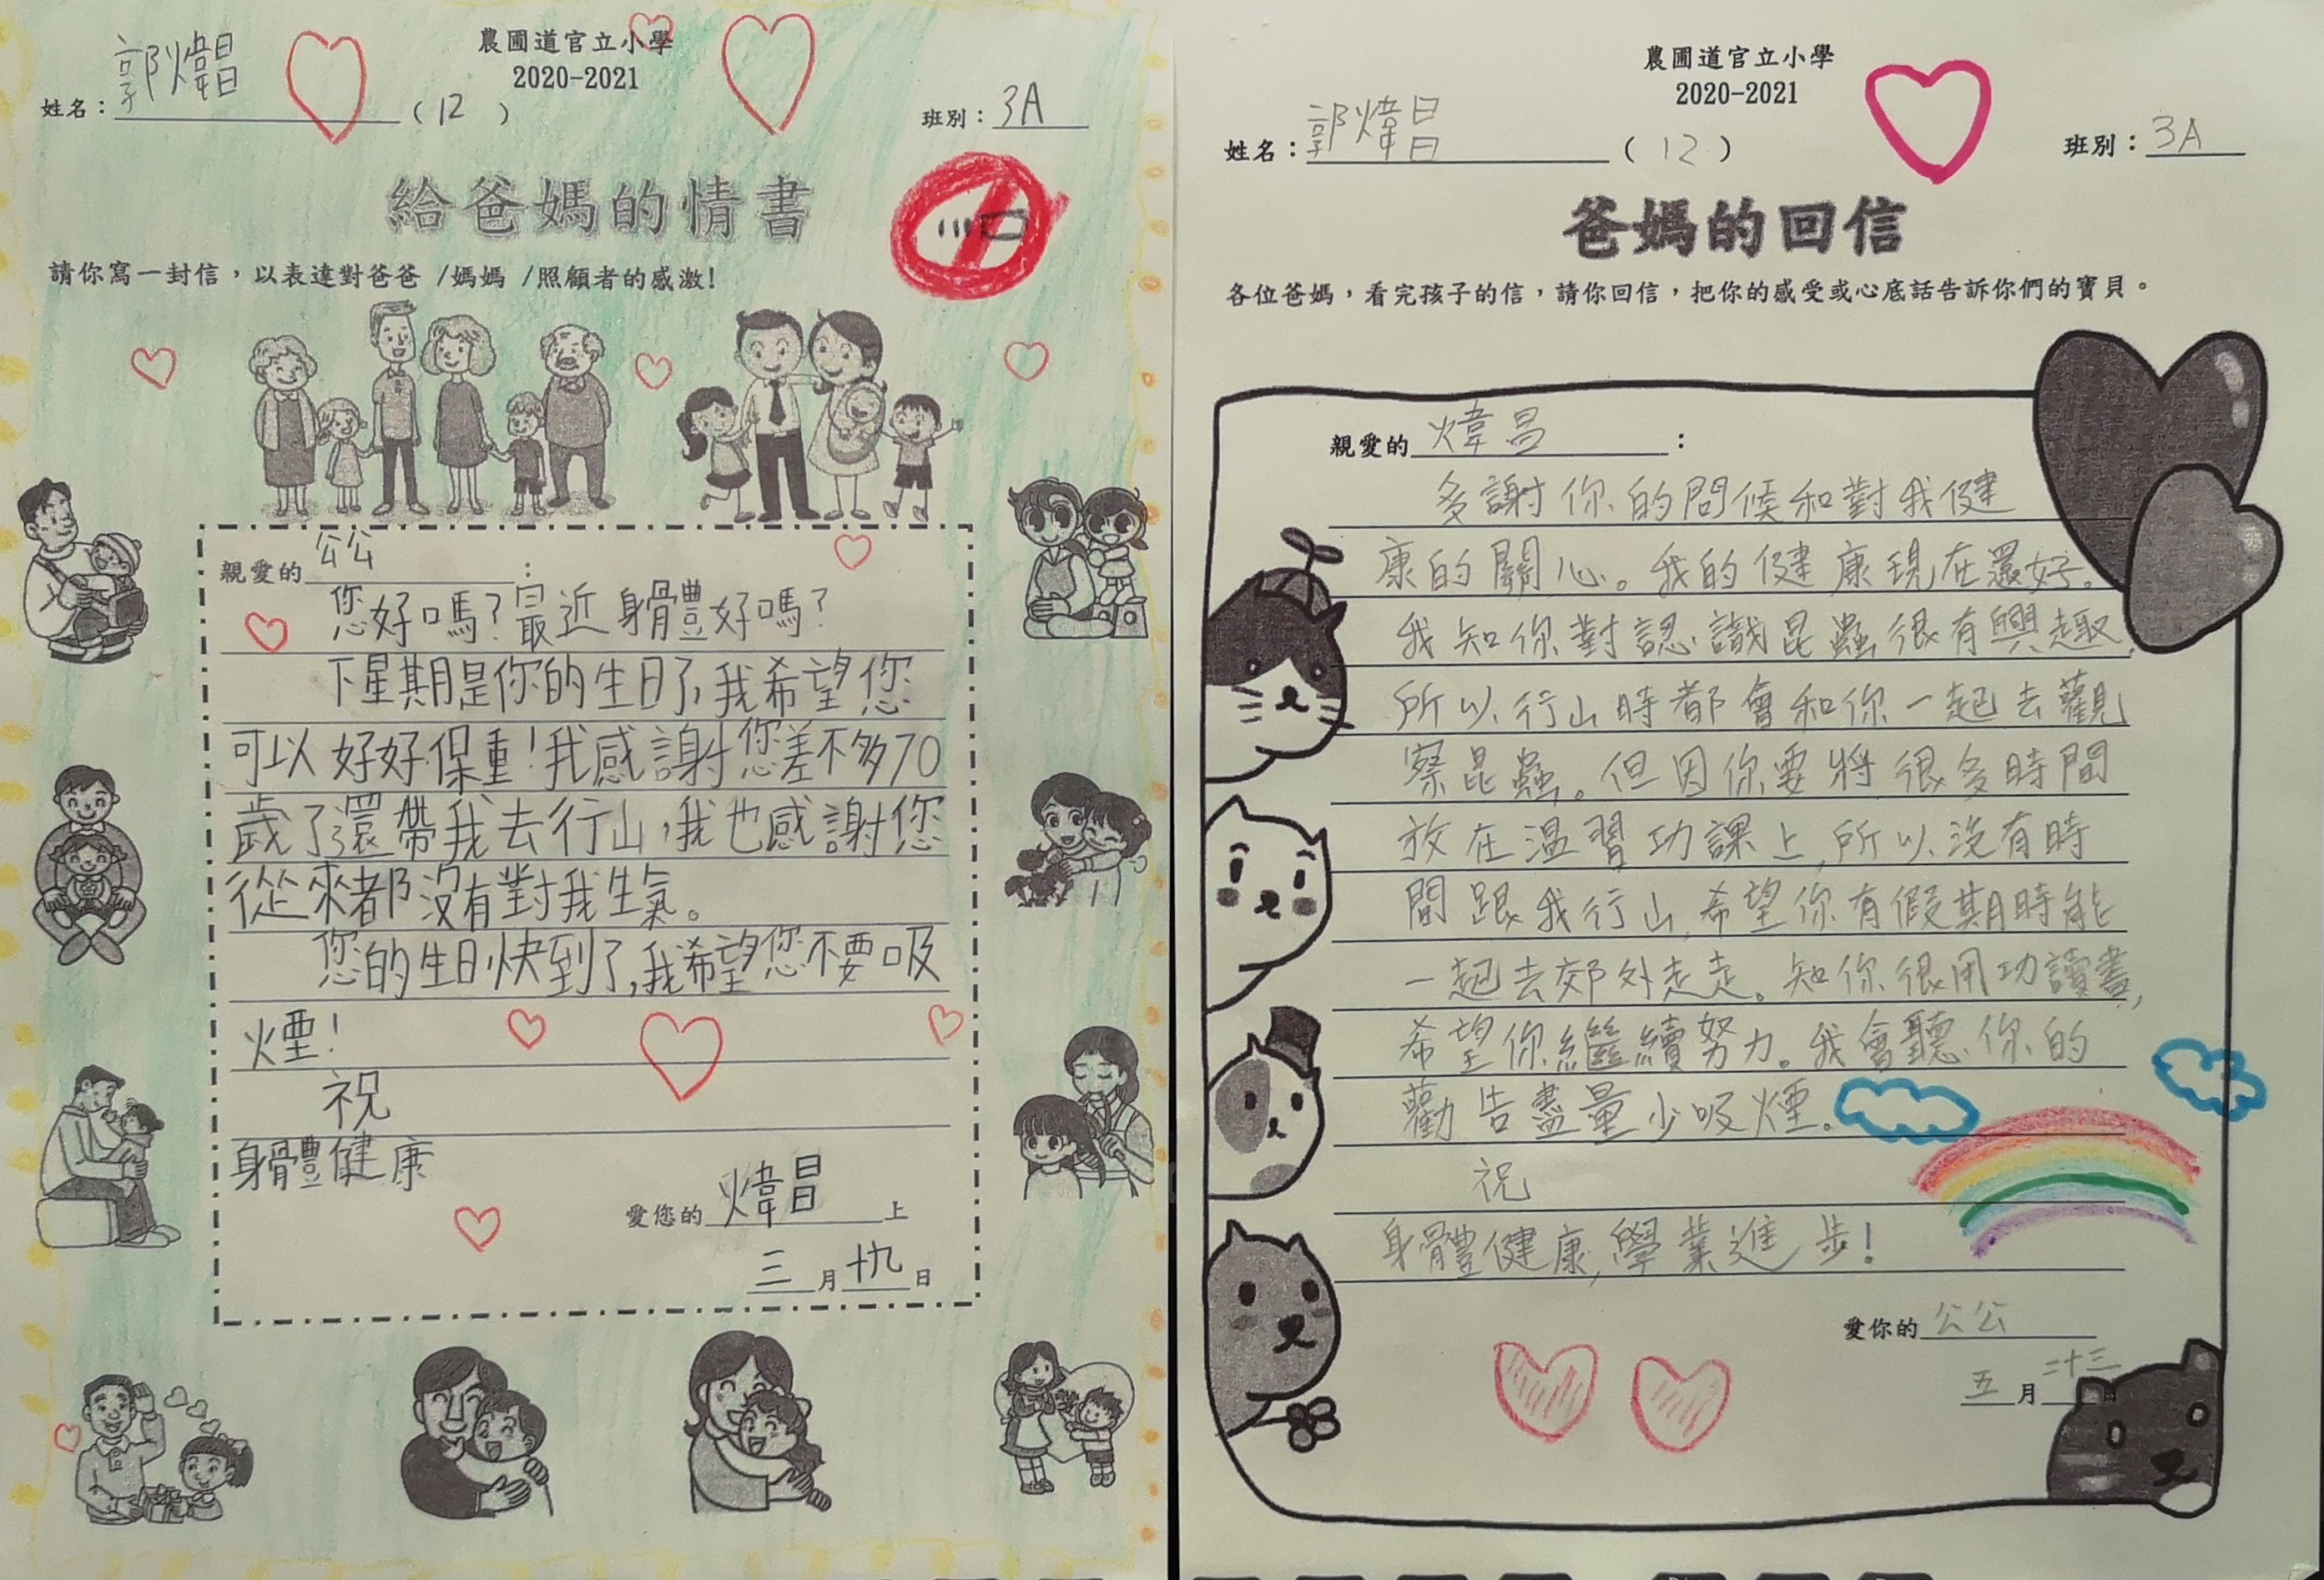 農圃道官立小學
2020-2021
姓名：郭煒昌（12）
班別：3A
給爸媽的情書
請你寫一封信，以表達對爸爸 /媽媽 /照顧者的感激!
親愛的公公：
您好嗎？最近身體好嗎？
下星期是你的生日了，我希望您
可以好好保重！我感謝您差不多70
歲了還帶我去行山，我也感謝您
從來都沒有對我生氣。
您的生日快到了，我希望您不要吸
煙！
祝
身體健康
愛您的煒昌上
三月十九日
農圃道官立小學
2020-2021
姓名：郭煒昌（12）
班別：3A
爸媽的回信
各位爸媽，看完孩子的信，請你回信，把你的感受或心底話告訴你們的寶貝。
親愛的煒昌：
多謝你的問候和對我健
康的關心。我的健康現在還好。
我知你對認識昆蟲很有興趣，
所以行山時都會和你一起去觀
察昆蟲。但因你要將很多時間
放在溫習功課上，所以沒有時
間跟我行山，希望你有假期時能
一起去郊外走走。知你很用功讀書，
希望你繼續努力。我會聽你的
勸告盡量少吸煙。
祝
身體健康，學業進步！
愛你的公公
五月二十三日